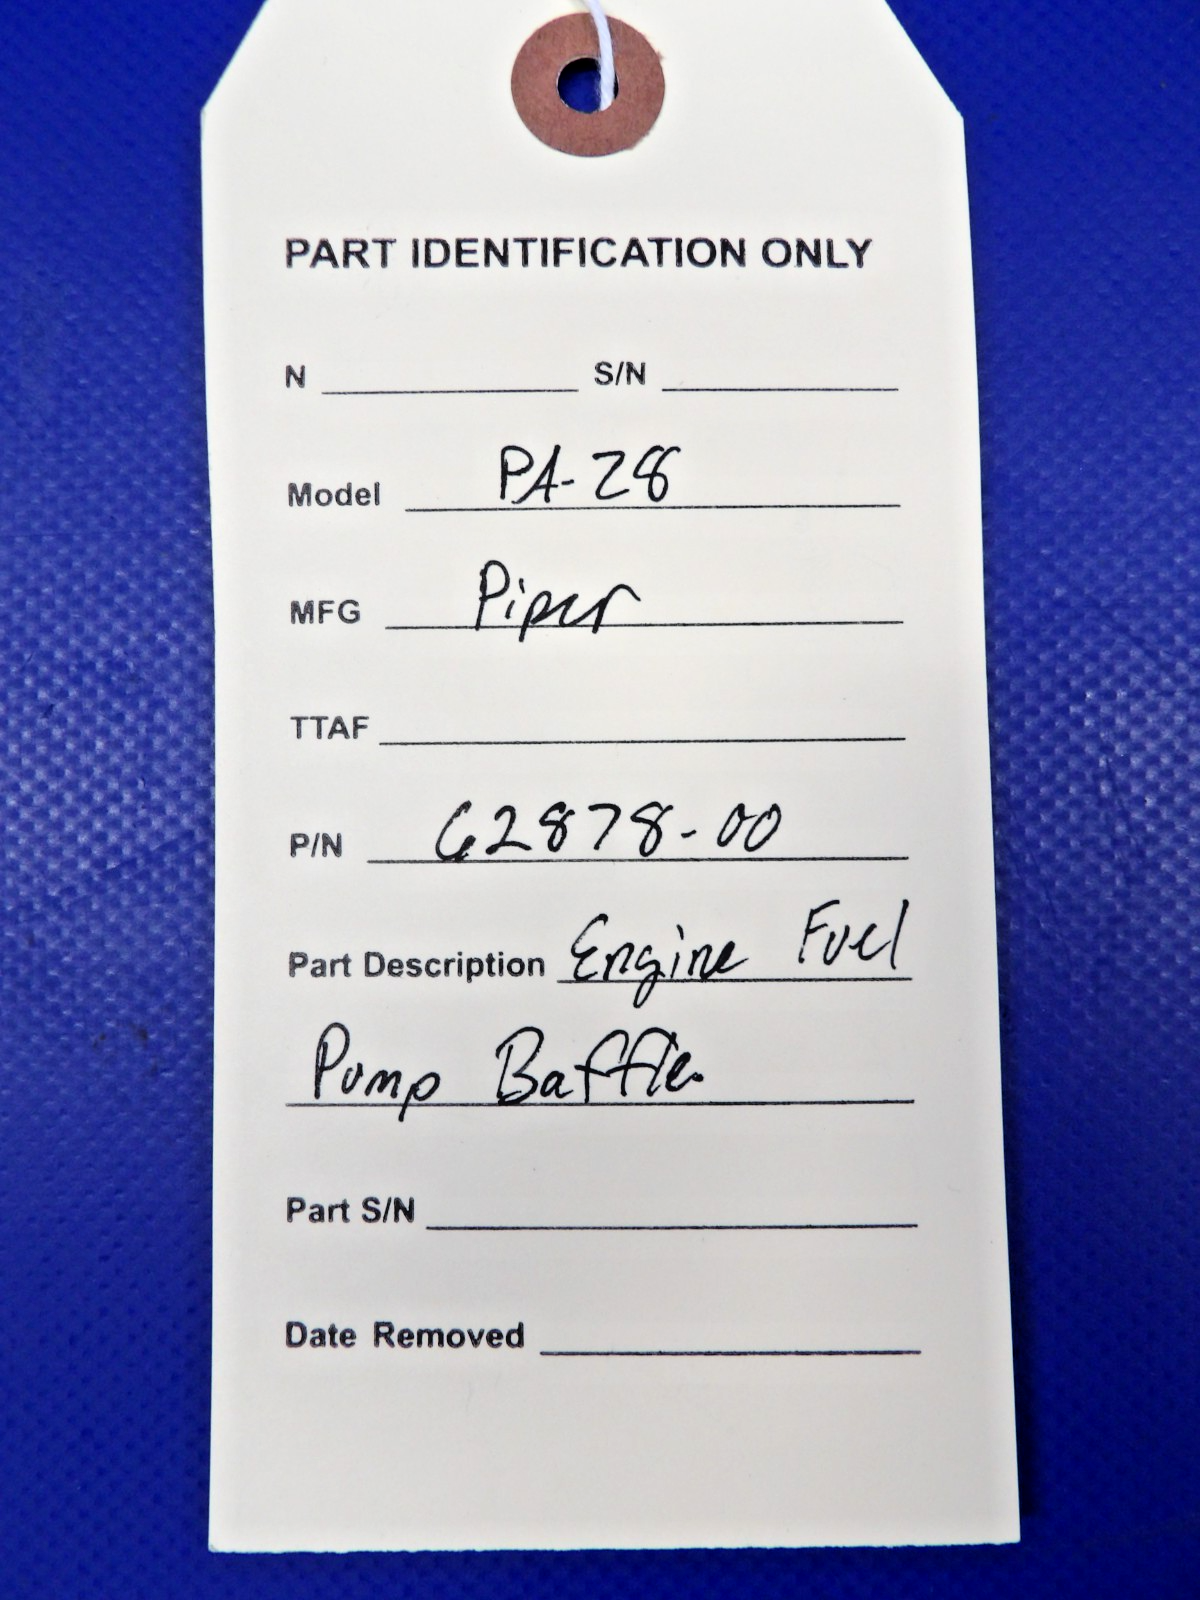 PART IDENTIFICATION ONLY
N S/N
Model PA-28
MFG Piper
TTAF
P/N 62878-00
Part Description Engine Fuel
Pump Baffle
Part S/N
Date Removed